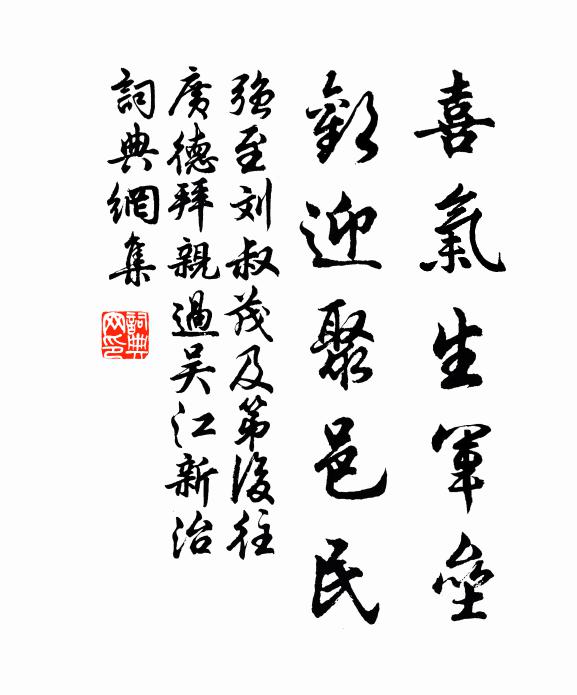 喜氣生軍壘
歡迎聚邑民
强至刘叔茂及第後往
廣德拜親過吴江新治
詞典網集
詞典網印